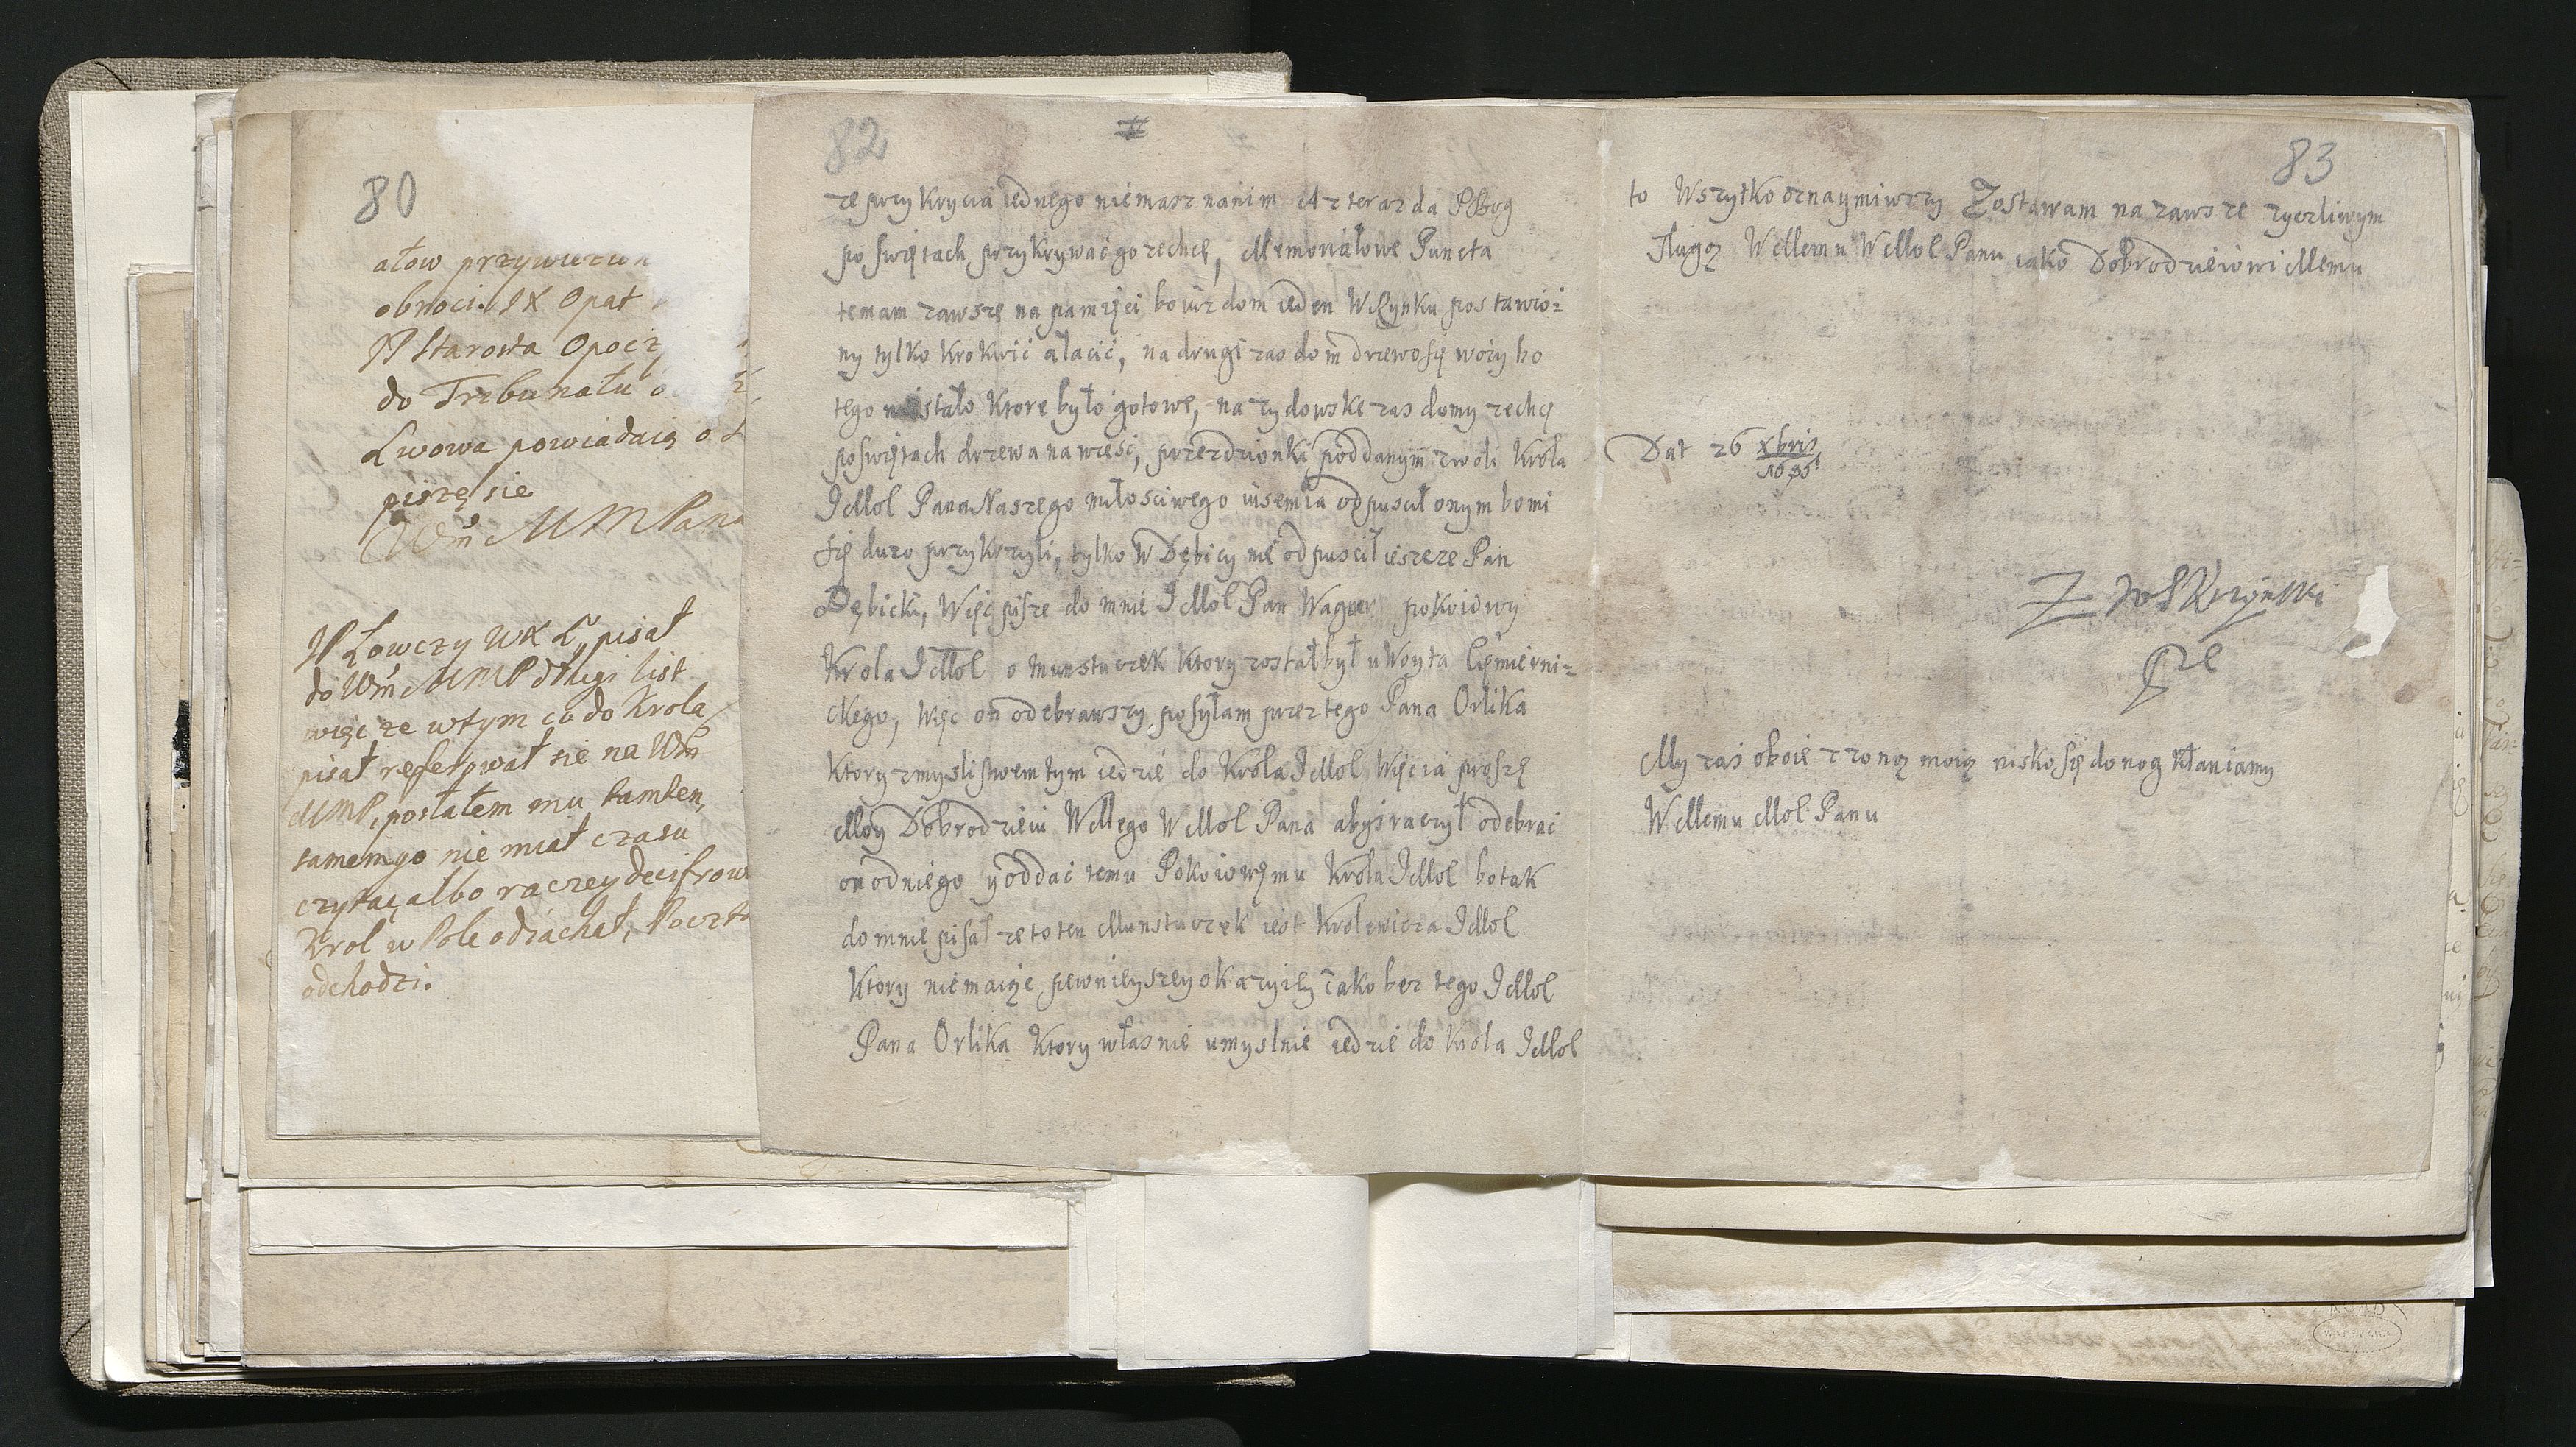 80
ałow przywuzun
obroci. JX Opat
JP Starosta Opocz
do Trebunału
Lwowa powiadaią o
piszę sie
Wm MMPana
JP Łowczy WX L pisał
do Wm MMP długi list
więc ze wtym co do Krola
pisał referował się na Wm
MMP, posłałem mu tamten,
samemgo nie miał czasu
czytac, albo raczey decifrow
Krol w Pole odiachał, Poczta
odchodzi.
82
ze przykrycia iednego niemasz nanim Az teraz da PBog
po swiętach przykrywać go zechcę, Memoriałowe Puncta
te mam zawsze na pamięci, bo iuz dom ieden W Rynku postawio=
ny tylko Krokwić a łacić, na drugi zas dom drzewo się wozy bo
tego niestało Ktore było gotowe, na zydowske zas domy zechcę
poswiętach drzewa nawieść, przezdzionki poddanym zwoli Krola
JMol Pana Naszego miłosciwego iusem ia odpuscił onym bo mi
się duzo przykrzyli, tylko W Dębicy nie odpuscił ieszcze Pan
Dębicki, Więc pisze do mnie JMol Pan Wagner pokoiowy
Krola JMol o munsztuczek Ktory został był u Woyta Ciemierni=
ckego, Więc on odebrawszy posyłam przez tego Pana Orlika
Ktory zmyslistwem tym iedzie do Krola JMol Więc ia proszę
Moy Dobrodzieiu WMego WMol Pana abys raczył odebrac
on odniego y oddac temu Pokoiowęmu Krola JMol bo tak
do mnie pisał ze to ten Munsztuczek iest Krolewicza JMol
Ktory niemaiąc pewnieyszey okazyiey iako bez tego JMol
Pana Orlika Ktory własnie umyslnie iedzie do Krola JMol
83
to Wszytko oznaymiwszy Zostawam na zawsze zyczliwym
sługą WMemu WMol Panu iako Dobrodzieiowi Memu
Dat 26 Xbris
My zas oboie z zoną moią nisko się do nog kłaniamy
WMemu Mol Panu